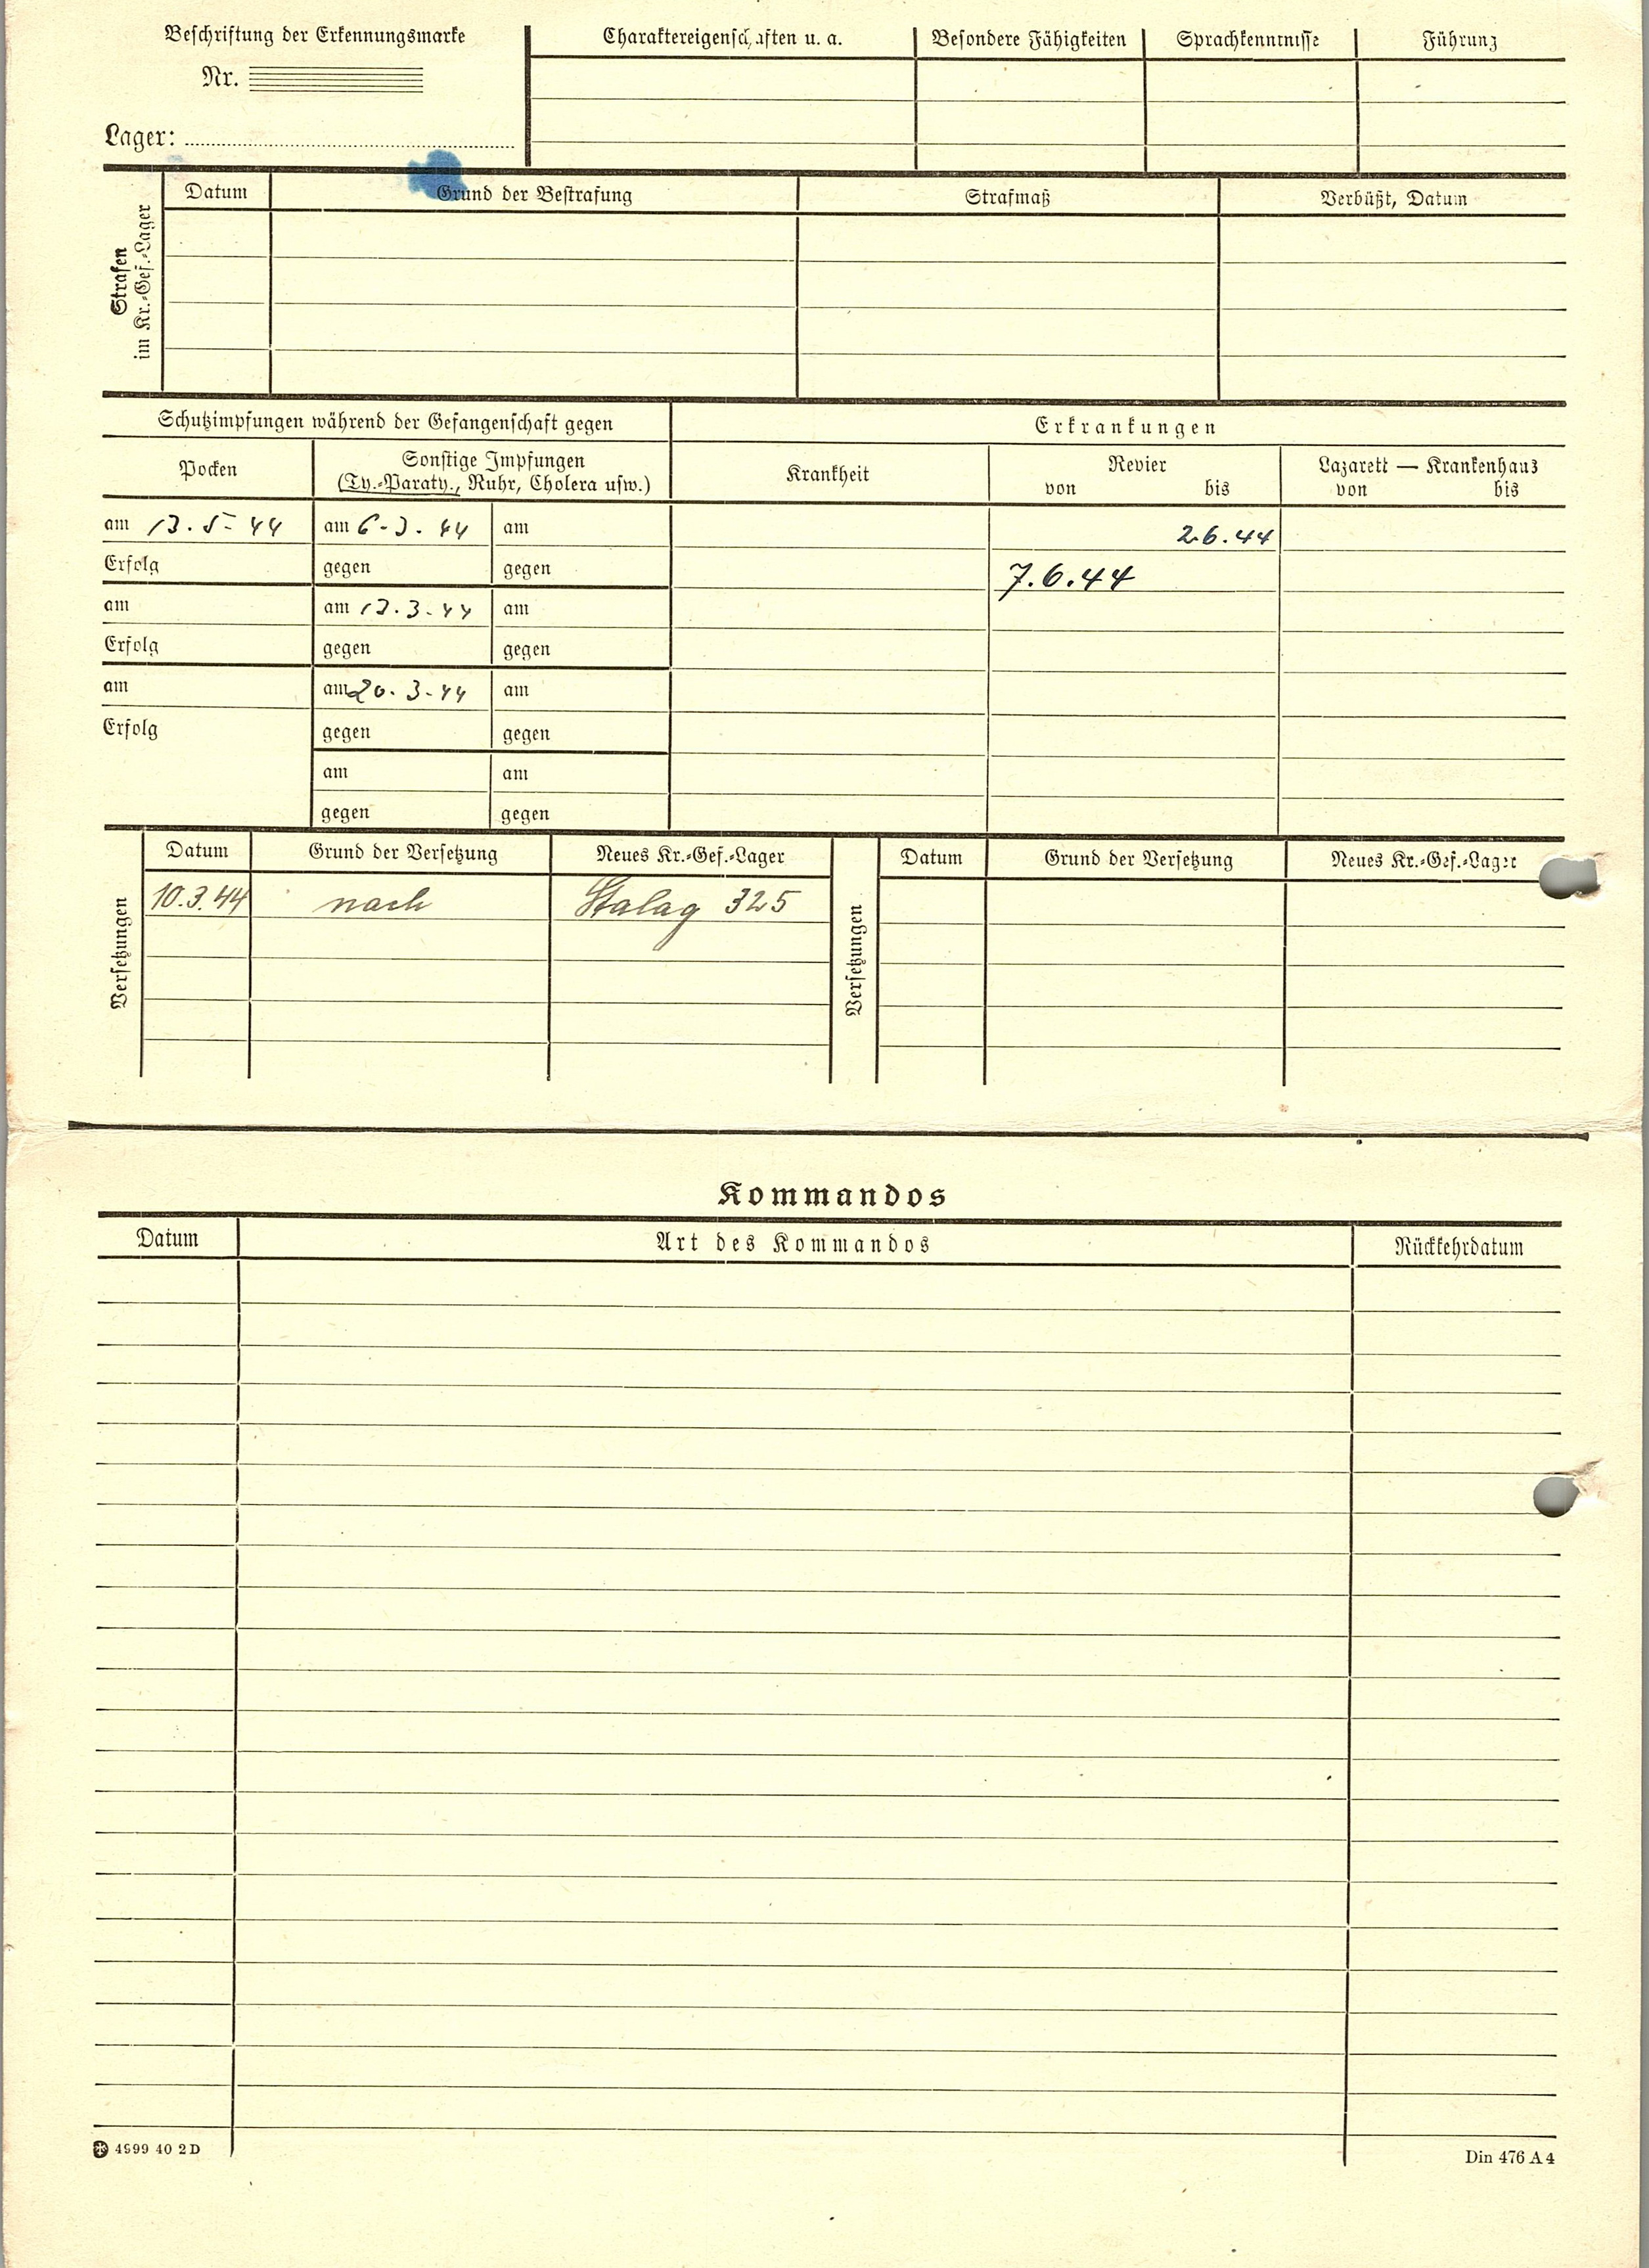 Beschriftung der Erkennungsmarke
Nr.
Lager:
Charaktereigenschaften u. a. Besondere Fähigkeiten Sprachkenntnisse Führung
Strafen
im Kr.-Gef.-Lager
Datum Grund der Bestrafung Strafmaß Verbüßt, Datum
Schutzimpfungen während der Gefangenschaft gegen
Erkrankungen
Pocken
Sonstige Impfungen
(Ty.-Paraty., Ruhr, Cholera usw.)
Krankheit
Revier
von bis
Lazarett — Krankenhaus
von bis
am 13.5.44 am 6.3.44 am
2.6.44
Erfolg gegen gegen
7.6.44
am am 13.3.44 am
Erfolg gegen gegen
am am 20.3.44 am
Erfolg gegen gegen
am am
gegen gegen
Versetzungen
Datum Grund der Versetzung Neues Kr.-Gef.-Lager
10.3.44 nach Stalag 325
Versetzungen
Datum Grund der Versetzung Neues Kr.-Gef.-Lager
Kommandos
Datum Art des Kommandos Rückkehrdatum
4999 40 2 D
Din 476 A 4